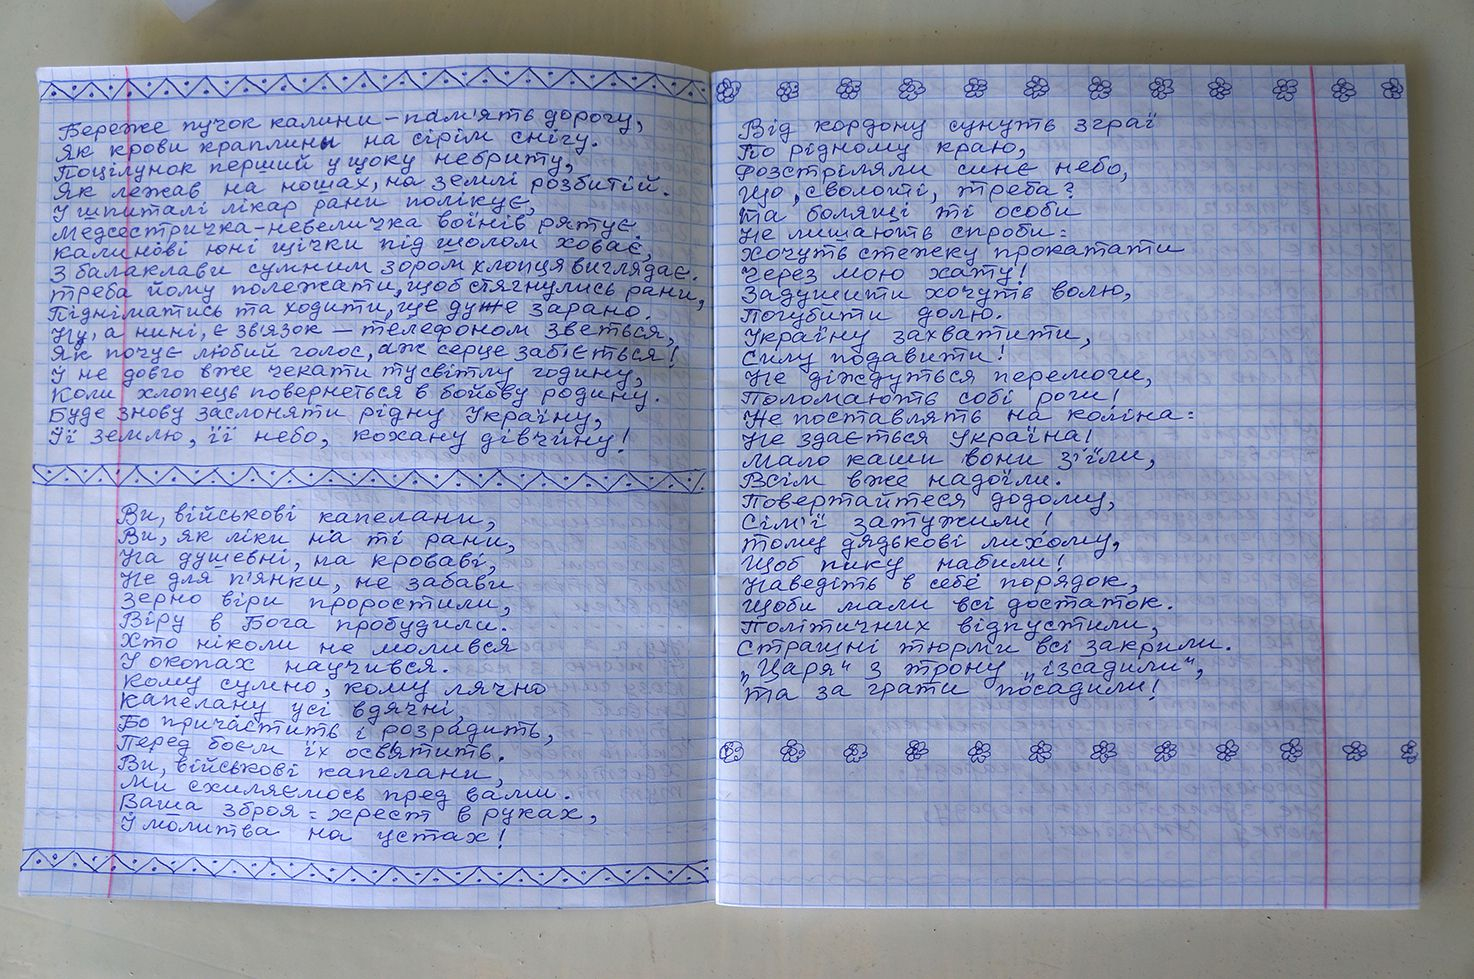 Береже пучок калини - пам'ять дорогу,
Як крови краплины на сірім снігу.
Поцілунок перший у щоку небриту,
Як лежав на ношах, на землі розбитій.
У шпиталі лікар рани полікує,
Медсестричка-невеличка воїнів рятує.
Калинові юні щічки під шолом ховає,
З балаклави сумним зором хлопця виглядає.
Треба йому полежати, щоб стягнулись рани,
Підніматись та ходити, ще дуже зарано.
Ну, а нині, є зв'язок - телефоном зветься,
Як почує любий голос, аж серце заб'ється!
У не довго вже чекати ту світлу годину,
Коли хлопець повернеться в бойову родину.
Буде знову заслоняти рідну Україну,
Її землю, її небо, кохану дівчину!
Ви, військові капелани,
Ви, як ліки на ті рани,
На душевні, на кроваві,
Не для п'янки, не забави
Зерно віри проростили,
Віру в Бога пробудили.
Хто ніколи не молився
У окопах научився.
Кому сумно, кому лячно
Капелану усі вдячні,
Бо причастить і розрадить,
Перед боєм їх освятить.
Ви, військові капелани,
Ми схиляємось пред вами.
Ваша зброя = хрест в руках,
У молитва на устах!
Від кордону сунуть зграї
По рідному краю,
Розстріляли синє небо,
Що, сволочі, треба?
Та болящі ті особи
Не лишають спроби:
Хочуть стежку прокатати
Через мою хату!
Задушити хочуть волю,
Погубити долю.
Україну захватити,
Силу подавити!
Не діждуться перемоги,
Поломають собі роги!
Не поставлять на коліна:
Не здається Україна!
Мало каши вони з'їли,
Всім вже надоїли.
Повертайтеся додому,
Сім'ї затужили!
Тому дядькові лихому,
Щоб пику набили!
Наведіть в себе порядок,
Щоби мали всі достаток.
Політичних відпустили,
Страшні тюрми всі закрили.
„Царя" з трону „ізсадили",
Та за грати посадили!